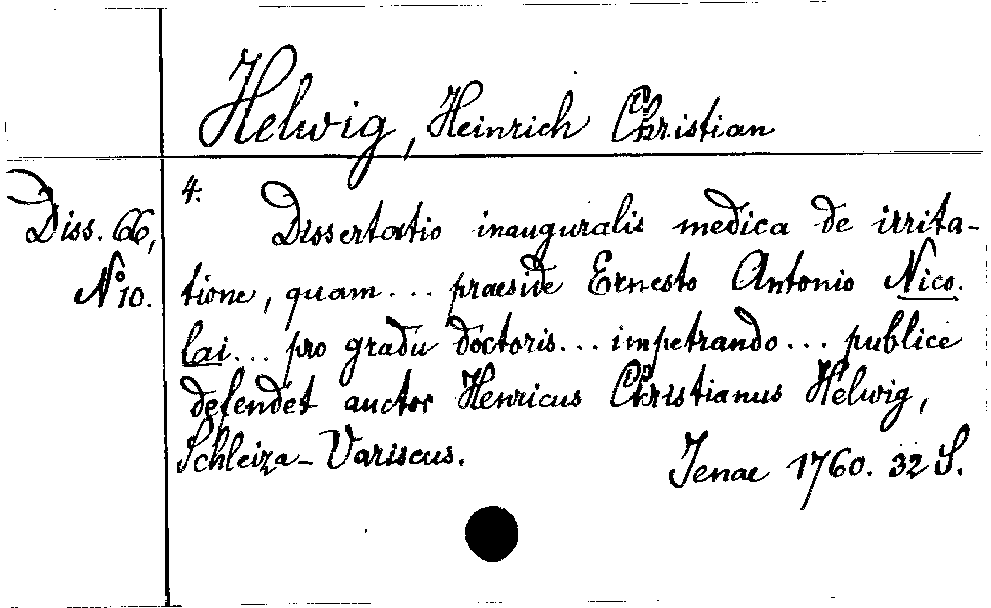 Helwig, Heinrich Christian
Diss. 66,
No 10.
4.
Dissertatio inauguralis medica de irrita-
tione, quam... praeside Ernesto Antonio Nico-
lai... pro gradu doctoris... impetrando... publice
defendet auctor Henricus Christianus Helwig,
Schleiza-Variscus.
Jenae 1760. 32 S.